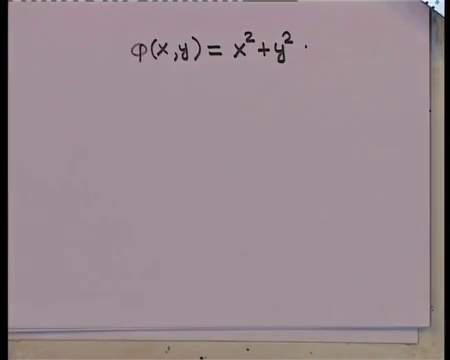 φ(x,y) = x² + y²